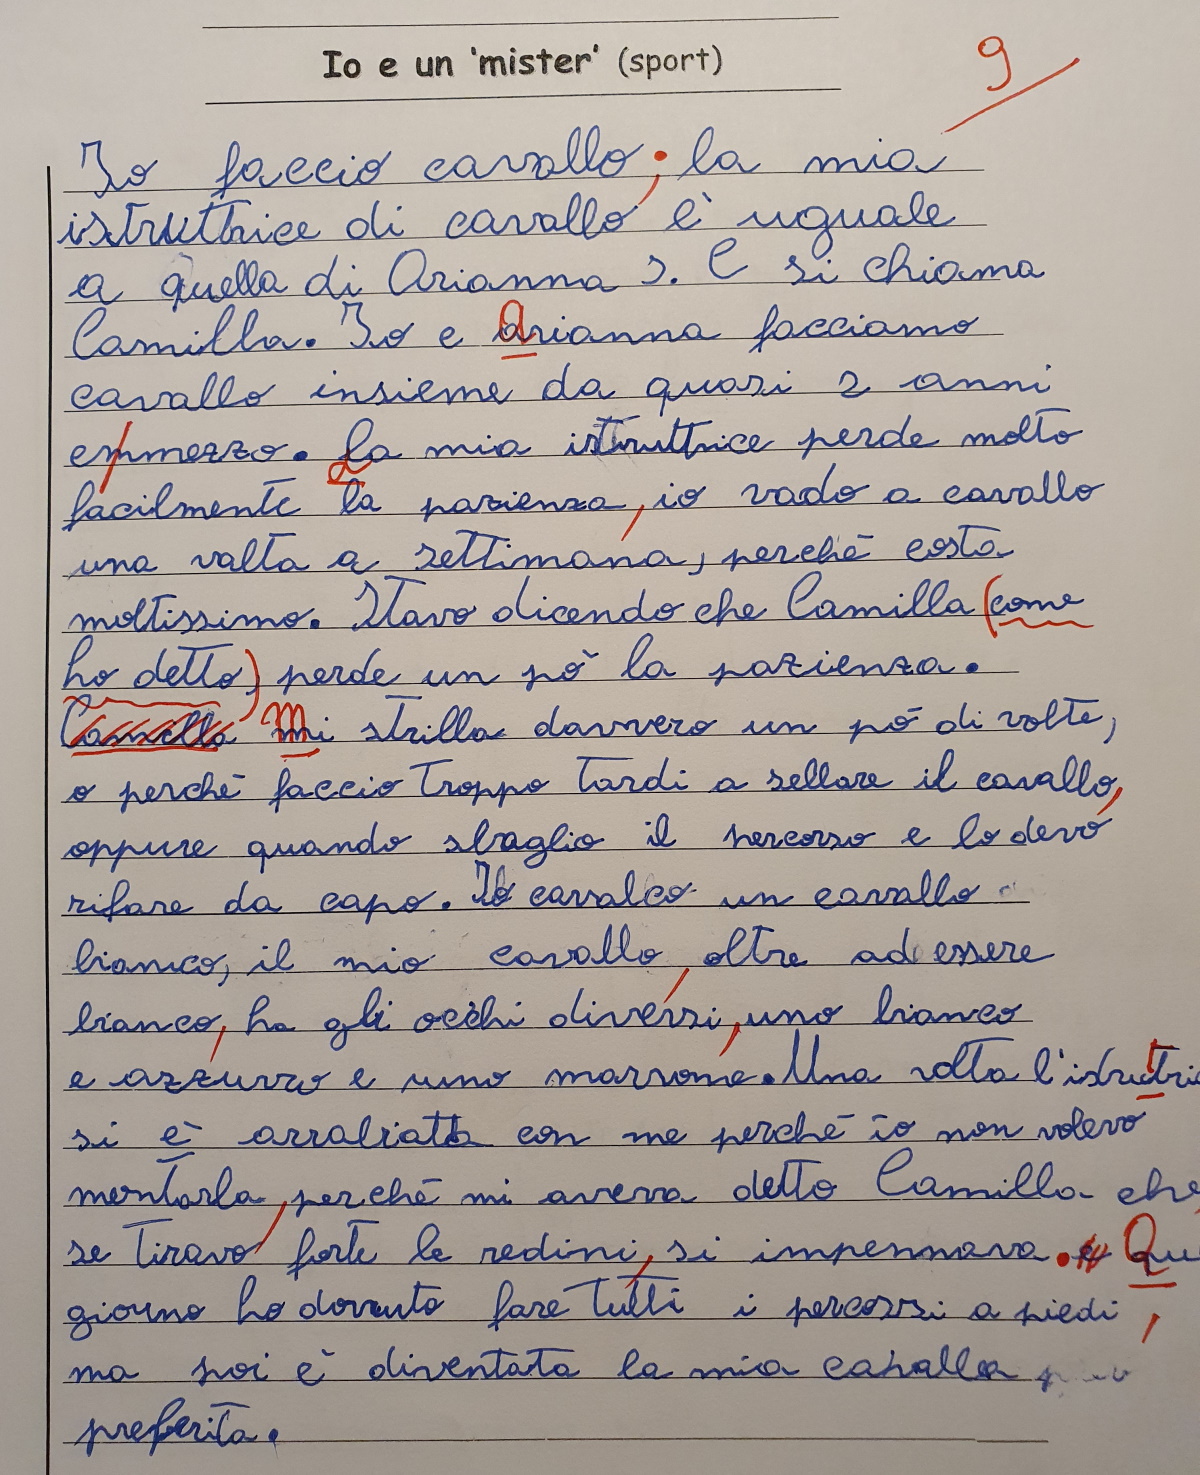 Io e un 'mister' (sport)
9
Io faccio cavallo; la mia
istruttrice di cavallo è uguale
a quella di Arianna S. E si chiama
Camilla. Io e Arianna facciamo
cavallo insieme da quasi 2 anni
emmezzo. La mia istruttrice perde molto
facilmente la pazienza, io vado a cavallo
una valta a settimana, perché costa
moltissimo. Stavo dicendo che Camilla (come
ho detto) perde un pò la pazienza.
Camilla Mi strilla davvero un pó di volte,
o perché faccio troppo tardi a sellare il cavallo,
oppure quando sbaglio il percorso e lo devo
rifare da capo. Io cavalco un cavallo
bianco, il mio cavallo, oltre ad essere
bianco, ha gli occhi diversi, uno bianco
e azzurro e uno marrone. Una volta l'istruttric
si è arrabiata con me perché io non volevo
montarla, perché mi aveva detto Camilla che,
se tiravo forte le redini, si impennava. e Qu
giorno ho dovuto fare tutti i percorsi a piedi,
ma poi è diventata la mia cavalla
preferita.